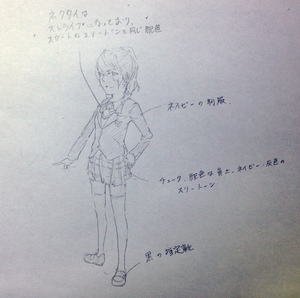 ネクタイは
ストライプになっており、
スカートのスリートーンと同じ配色
ネイビーの制服
チェック、配色は黄土、ネイビー、灰色の
スリートーン
黒の指定靴